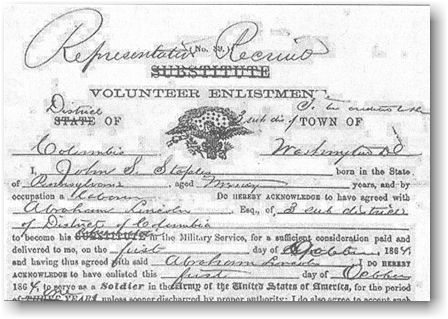 Representative Recruit
(No. 39.)
SUBSTITUTE
VOLUNTEER ENLISTMENT
District
STATE OF 3 sub dis of TOWN OF
Columbia Washington DC
I, John S. Staples born in the State
of Pennsylvania, aged Twenty years, and by
occupation a Laborer Do HEREBY ACKNOWLEDGE to have agreed with
Abraham Lincoln Esq., of 3 sub district
of District of Columbia
to become his SUBSTITUTE in the Military Service, for a sufficient consideration paid and
delivered to me, on the first day of October, 1864;
and having thus agreed with said Abraham Lincoln I DO HEREBY
ACKNOWLEDGE to have enlisted this first day of October
1864, to serve as a Soldier in the Army of the United States of America, for the period
of THREE YEARS unless sooner discharged by proper authority: I do also agree to accept such